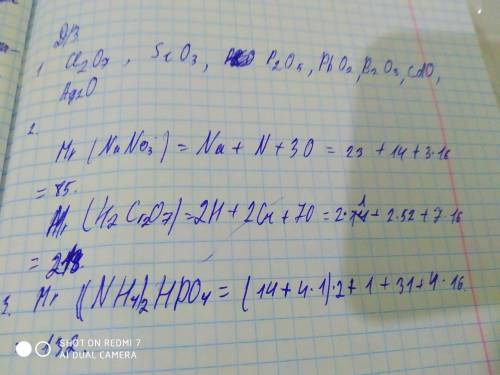 Д/З
1. Cl2O7, SeO3, P2O5, PbO2, B2O3, CdO,
Ag2O
2.
Mr (NaNO3) = Na + N + 3O = 23 + 14 + 3·16
= 85.
Mr (H2Cr2O7) = 2H + 2Cr + 7O = 2·1 + 2·52 + 7·16
= 218.
3. Mr ((NH4)2HPO4 = (14 + 4·1)·2 + 1 + 31 + 4·16.
132
SHOT ON REDMI 7
AI DUAL CAMERA